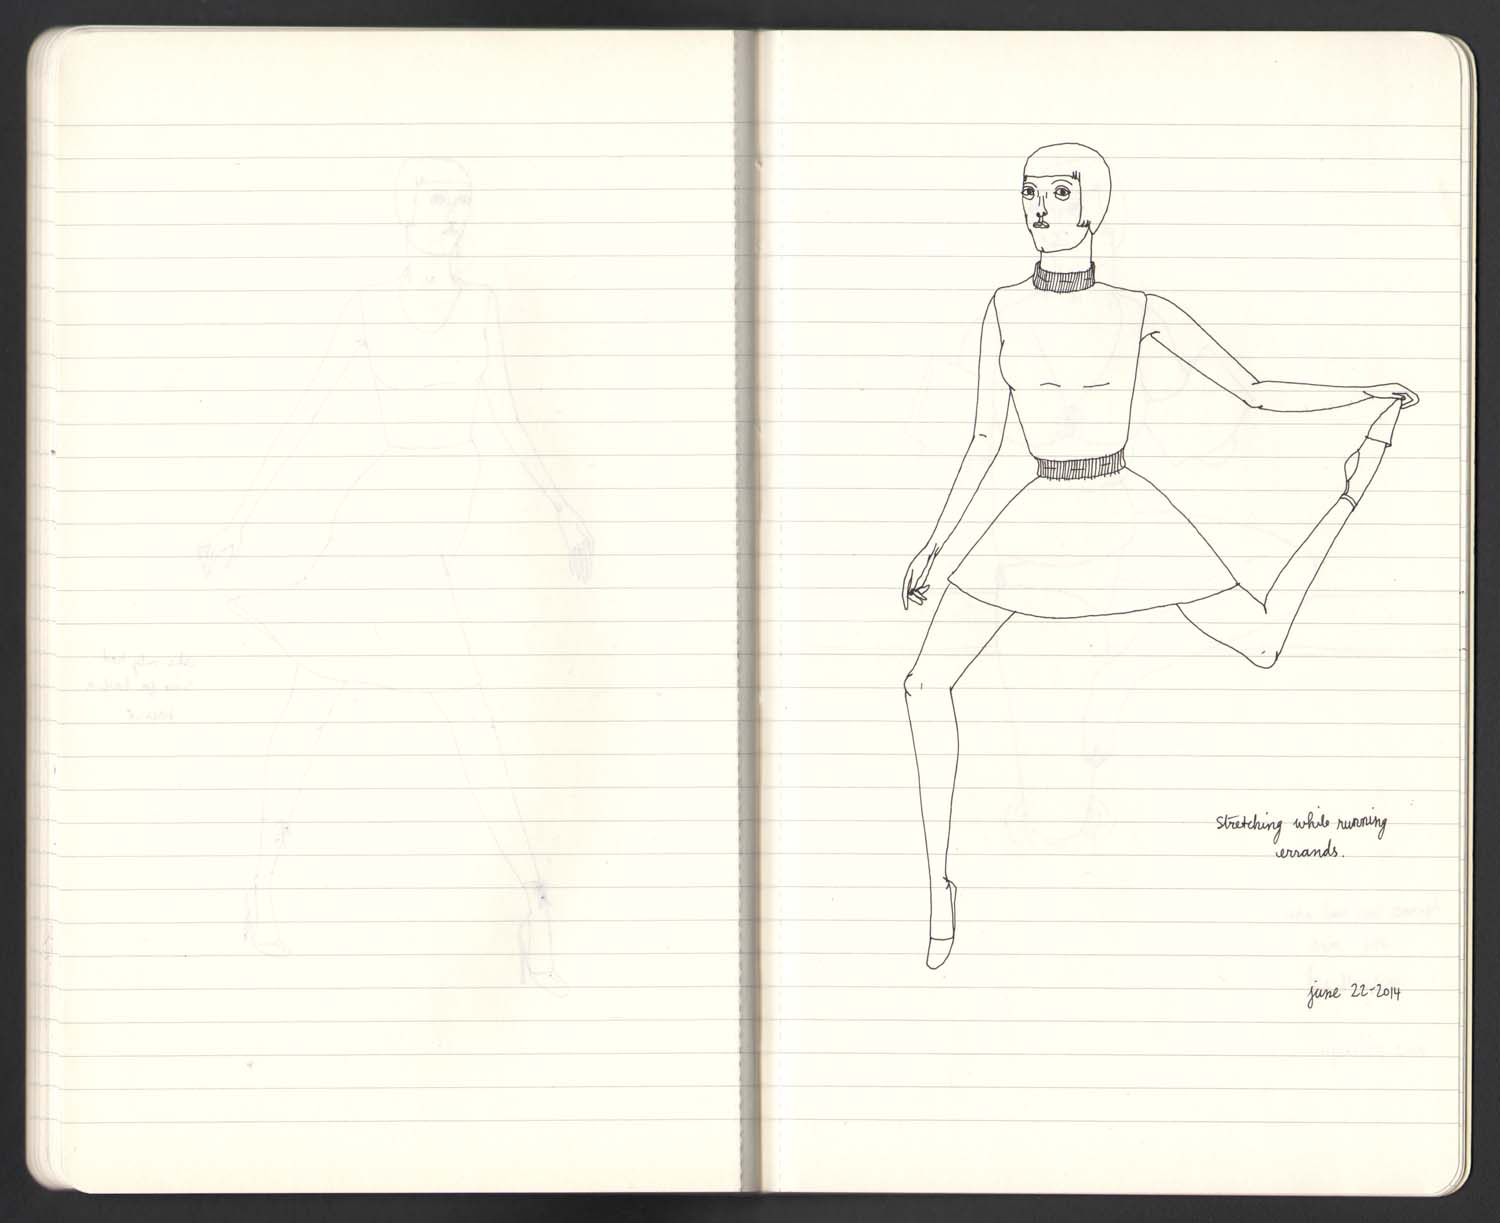 stretching while running
errands.
june 22-2014